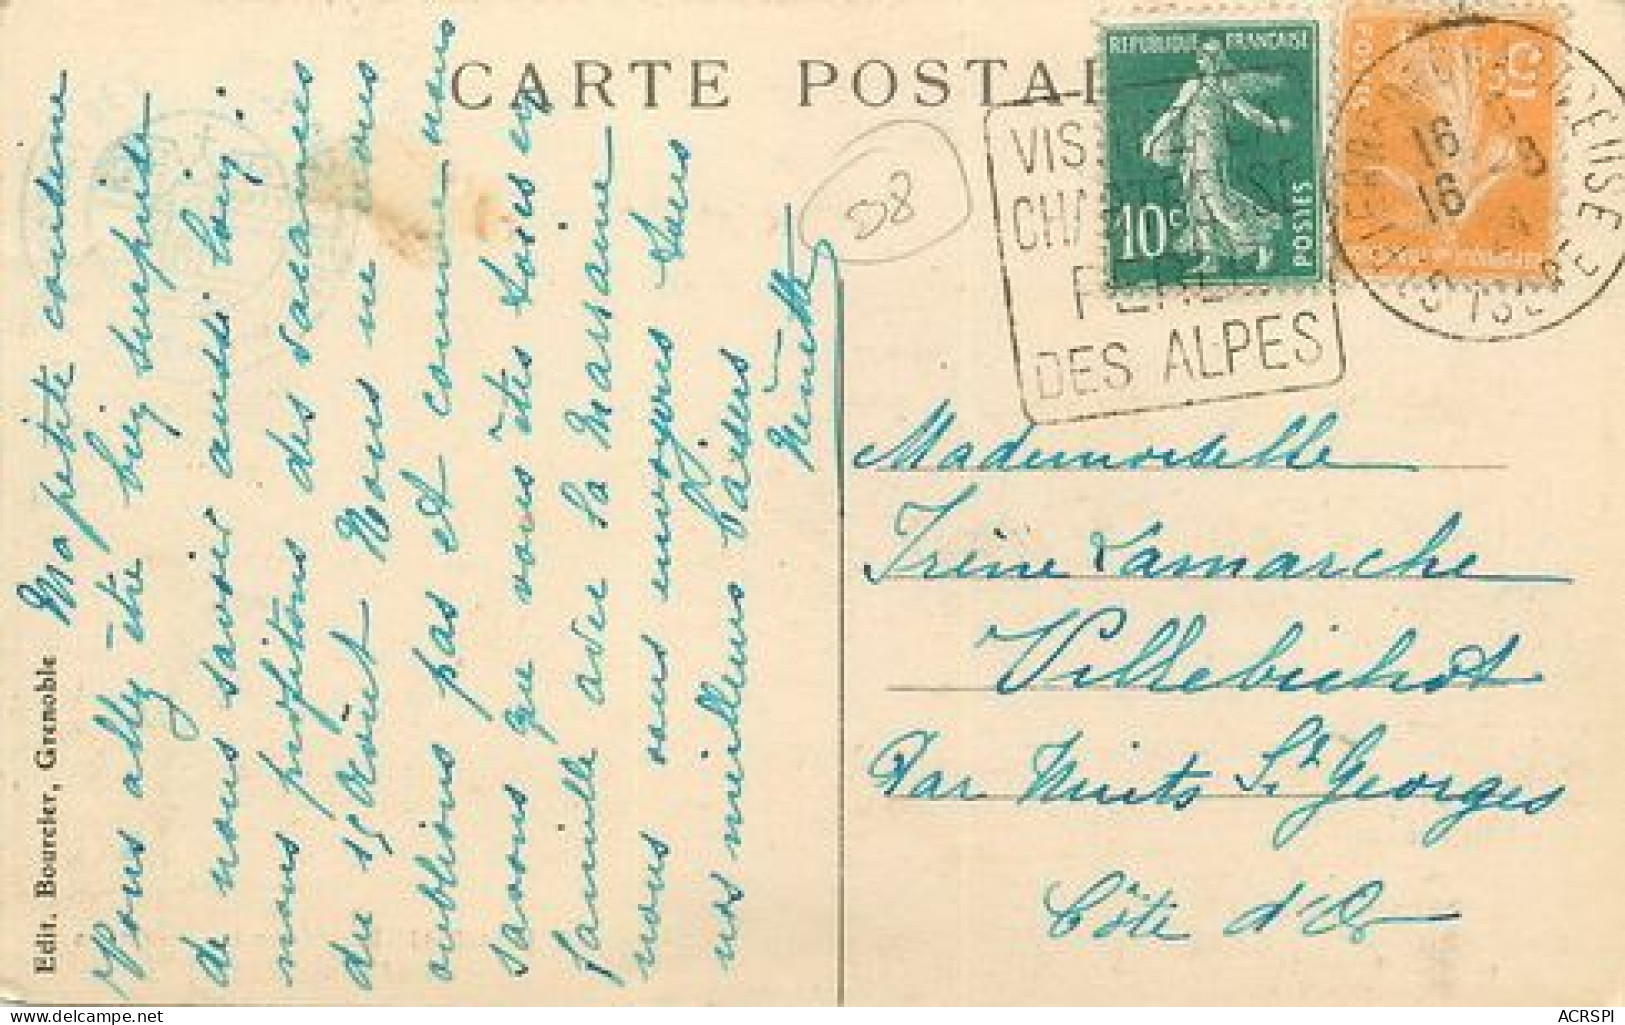 CARTE POSTAL
Edit. Bourcier, Grenoble
Ma petite cousine
Vous allez être bien surprise
de nous savoir aussi loin.
nous profitons des vacances
du 15 Août Nous ne vous
oublions pas et comme nous
savons que vous êtes tous en
famille avec la Marraine
nous vous envoyons tous
nos meilleurs baisers
Ninette
58
REPUBLIQUE FRANÇAISE
10c
POSTES
DES ALPES
16
16
ISERE
Mademoiselle
Irène Lamarche
Villebichot
Par Nuits St Georges
Côte d'Or
delcampe.net
ACRSPI